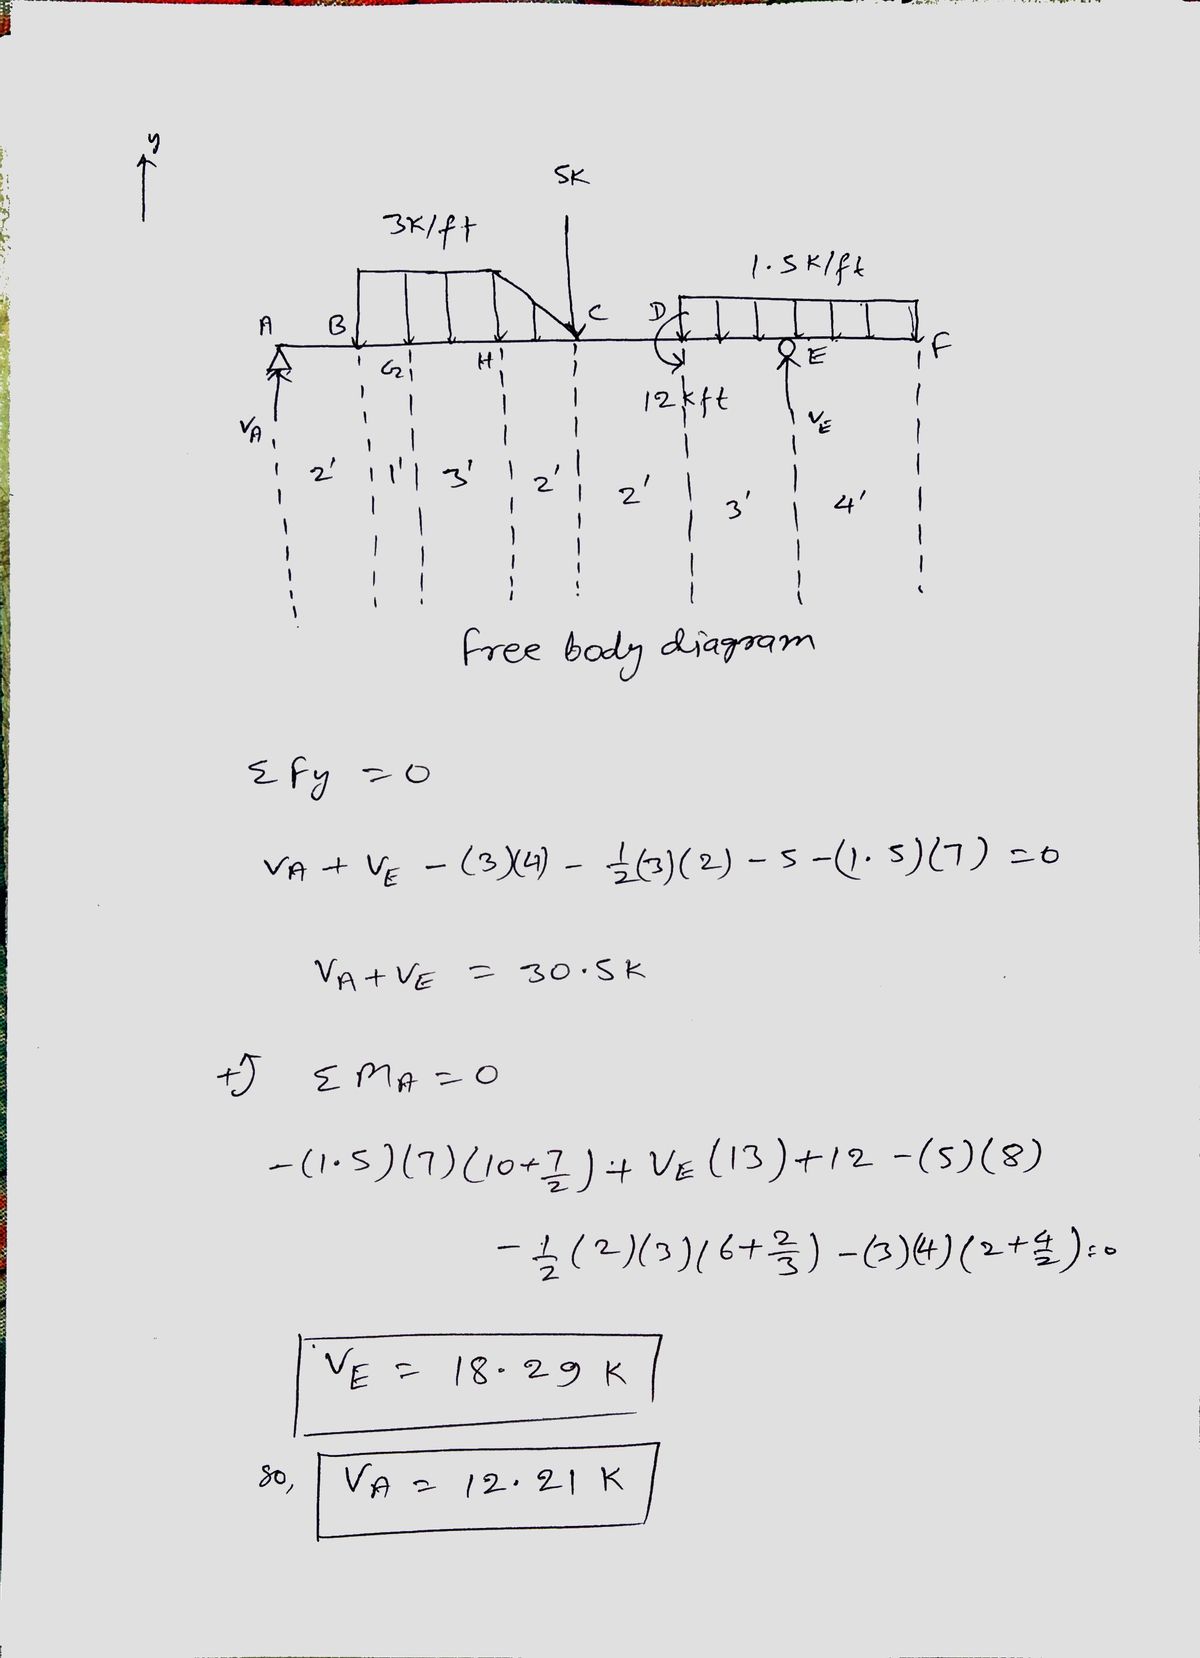 y
5K
3K/ft
1.5K/ft
A B C D
G H E F
12kft
VA VE
2' 1' 3' 2' 2' 3' 4'
free body diagram
Σ Fy = 0
VA + VE - (3)(4) - 1/2(3)(2) - 5 - (1.5)(7) = 0
VA + VE = 30.5K
+↺ Σ MA = 0
-(1.5)(7)(10+7/2) + VE (13) + 12 - (5)(8)
- 1/2 (2)(3)(6+2/3) - (3)(4)(2+4/2) = 0
VE = 18.29 K
so, VA = 12.21 K